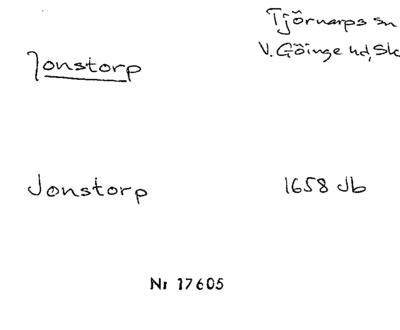 Tjörnarps sn
Jonstorp
V. Göinge hd, Sk
Jonstorp
1658 Jb
Nr 17605